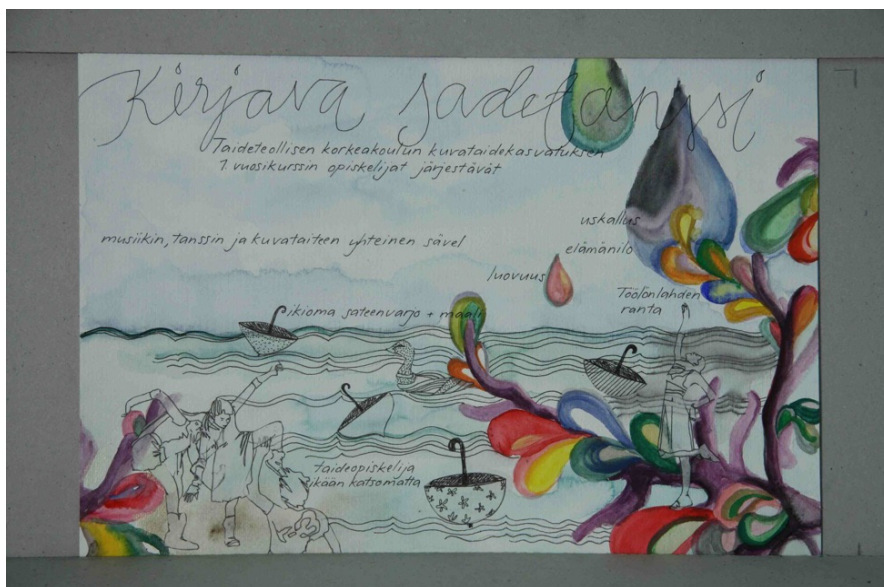 Kirjava sadetanssi
Taideteollisen korkeakoulun kuvataidekasvatuksen
1. vuosikurssin opiskelijat järjestävät
uskallus
musiikin, tanssin ja kuvataiteen yhteinen sävel
elämänilo
luovuus
Töölönlahden
ranta
ikioma sateenvarjo + maali
taideopiskelija
ikään katsomatta